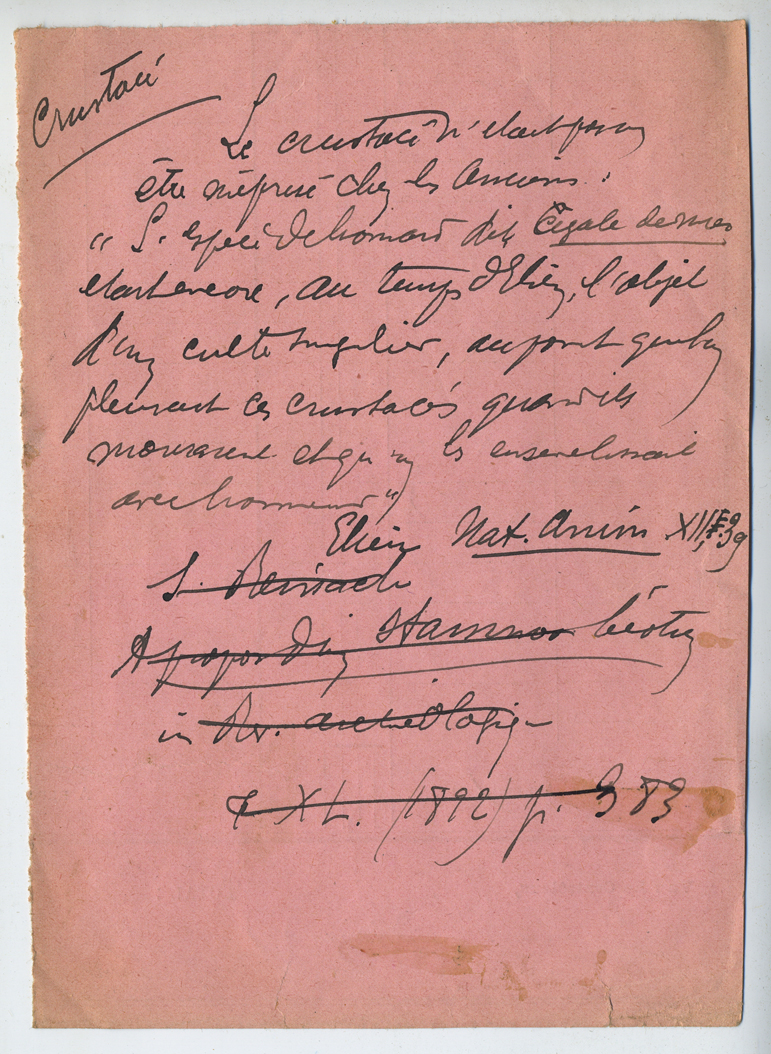 Crustacé
Le crustacé n'était pas
être méprisé chez les Anciens :
" L'espèce de homard dite Cigale de mer
était encore, au temps d'Elien, l'objet
d'un culte singulier, au point qu'on
pleurait ces crustacés quand ils
mouraient et qu'on les ensevelissait
avec honneur "
Elien Nat. Anim XIII,
S. Reinach
A propos d'un stamnos béotien
in Rev. archéologique
t XL. (1892) p. 383